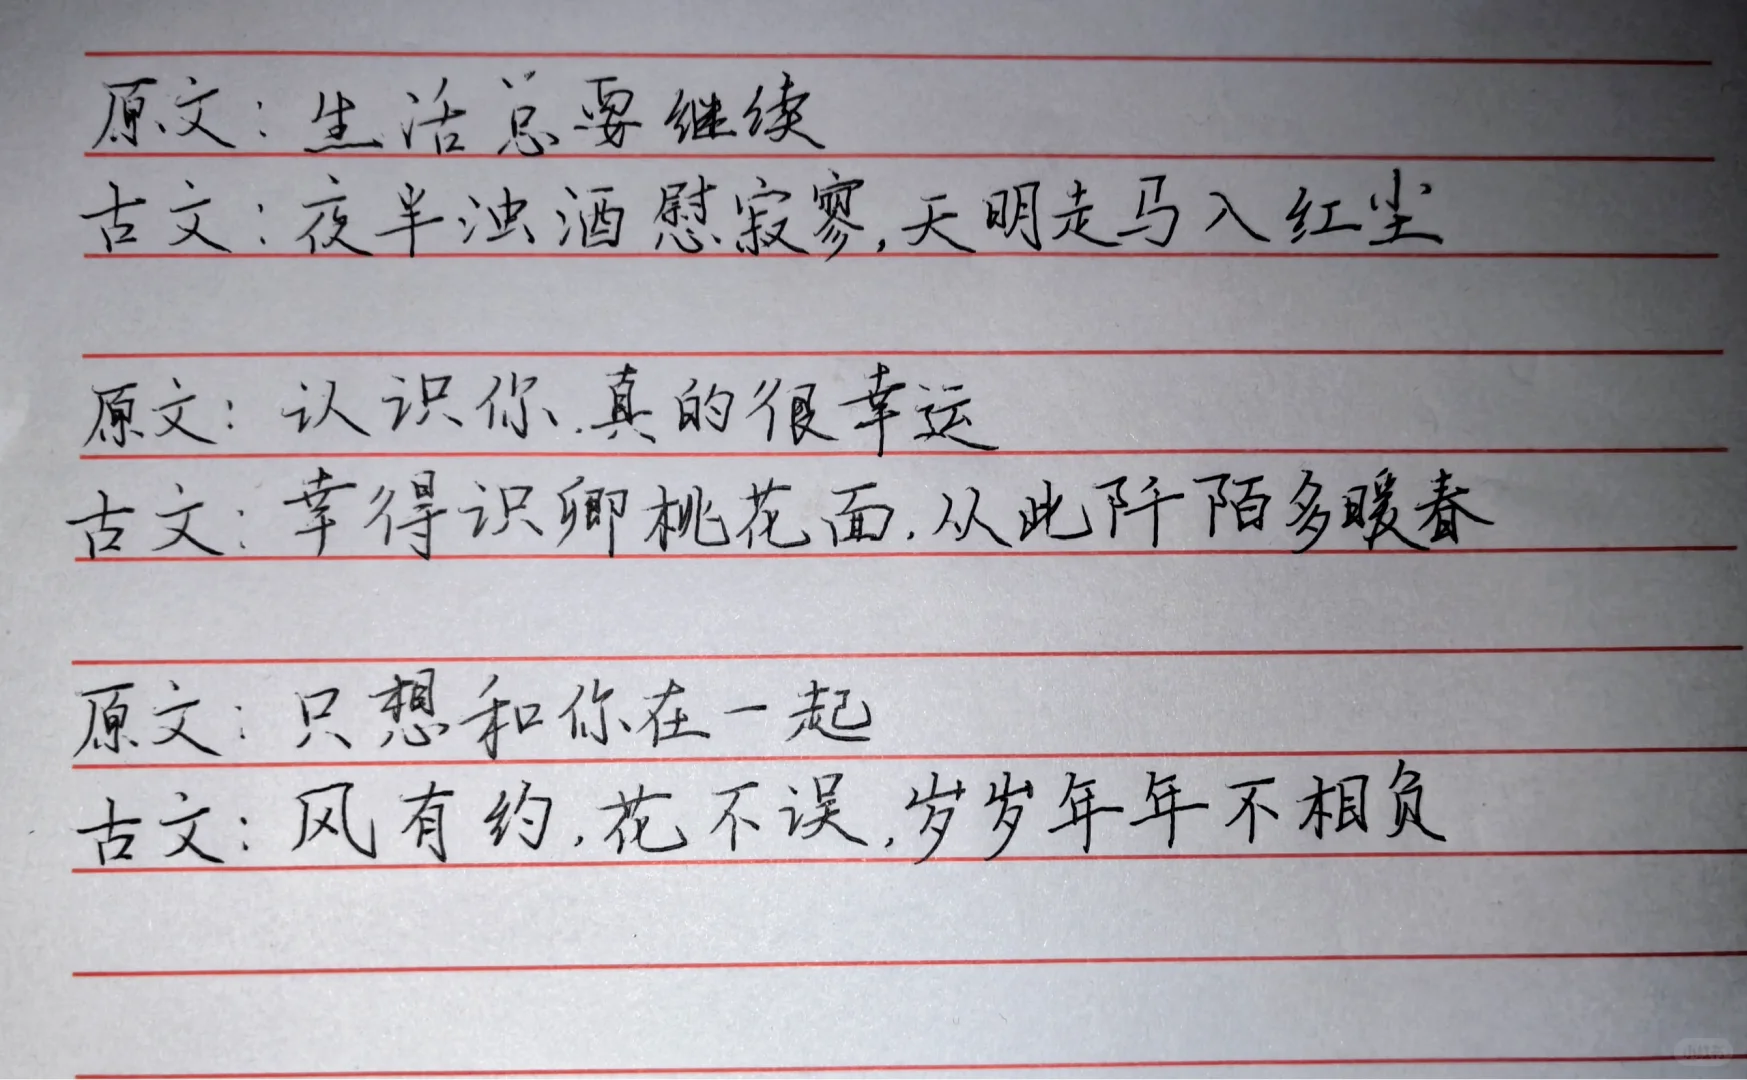 原文：生活总要继续
古文：夜半浊酒慰寂寥,天明走马入红尘
原文：认识你.真的很幸运
古文：幸得识卿桃花面.从此阡陌多暖春
原文：只想和你在一起
古文：风有约,花不误,岁岁年年不相负
小红书